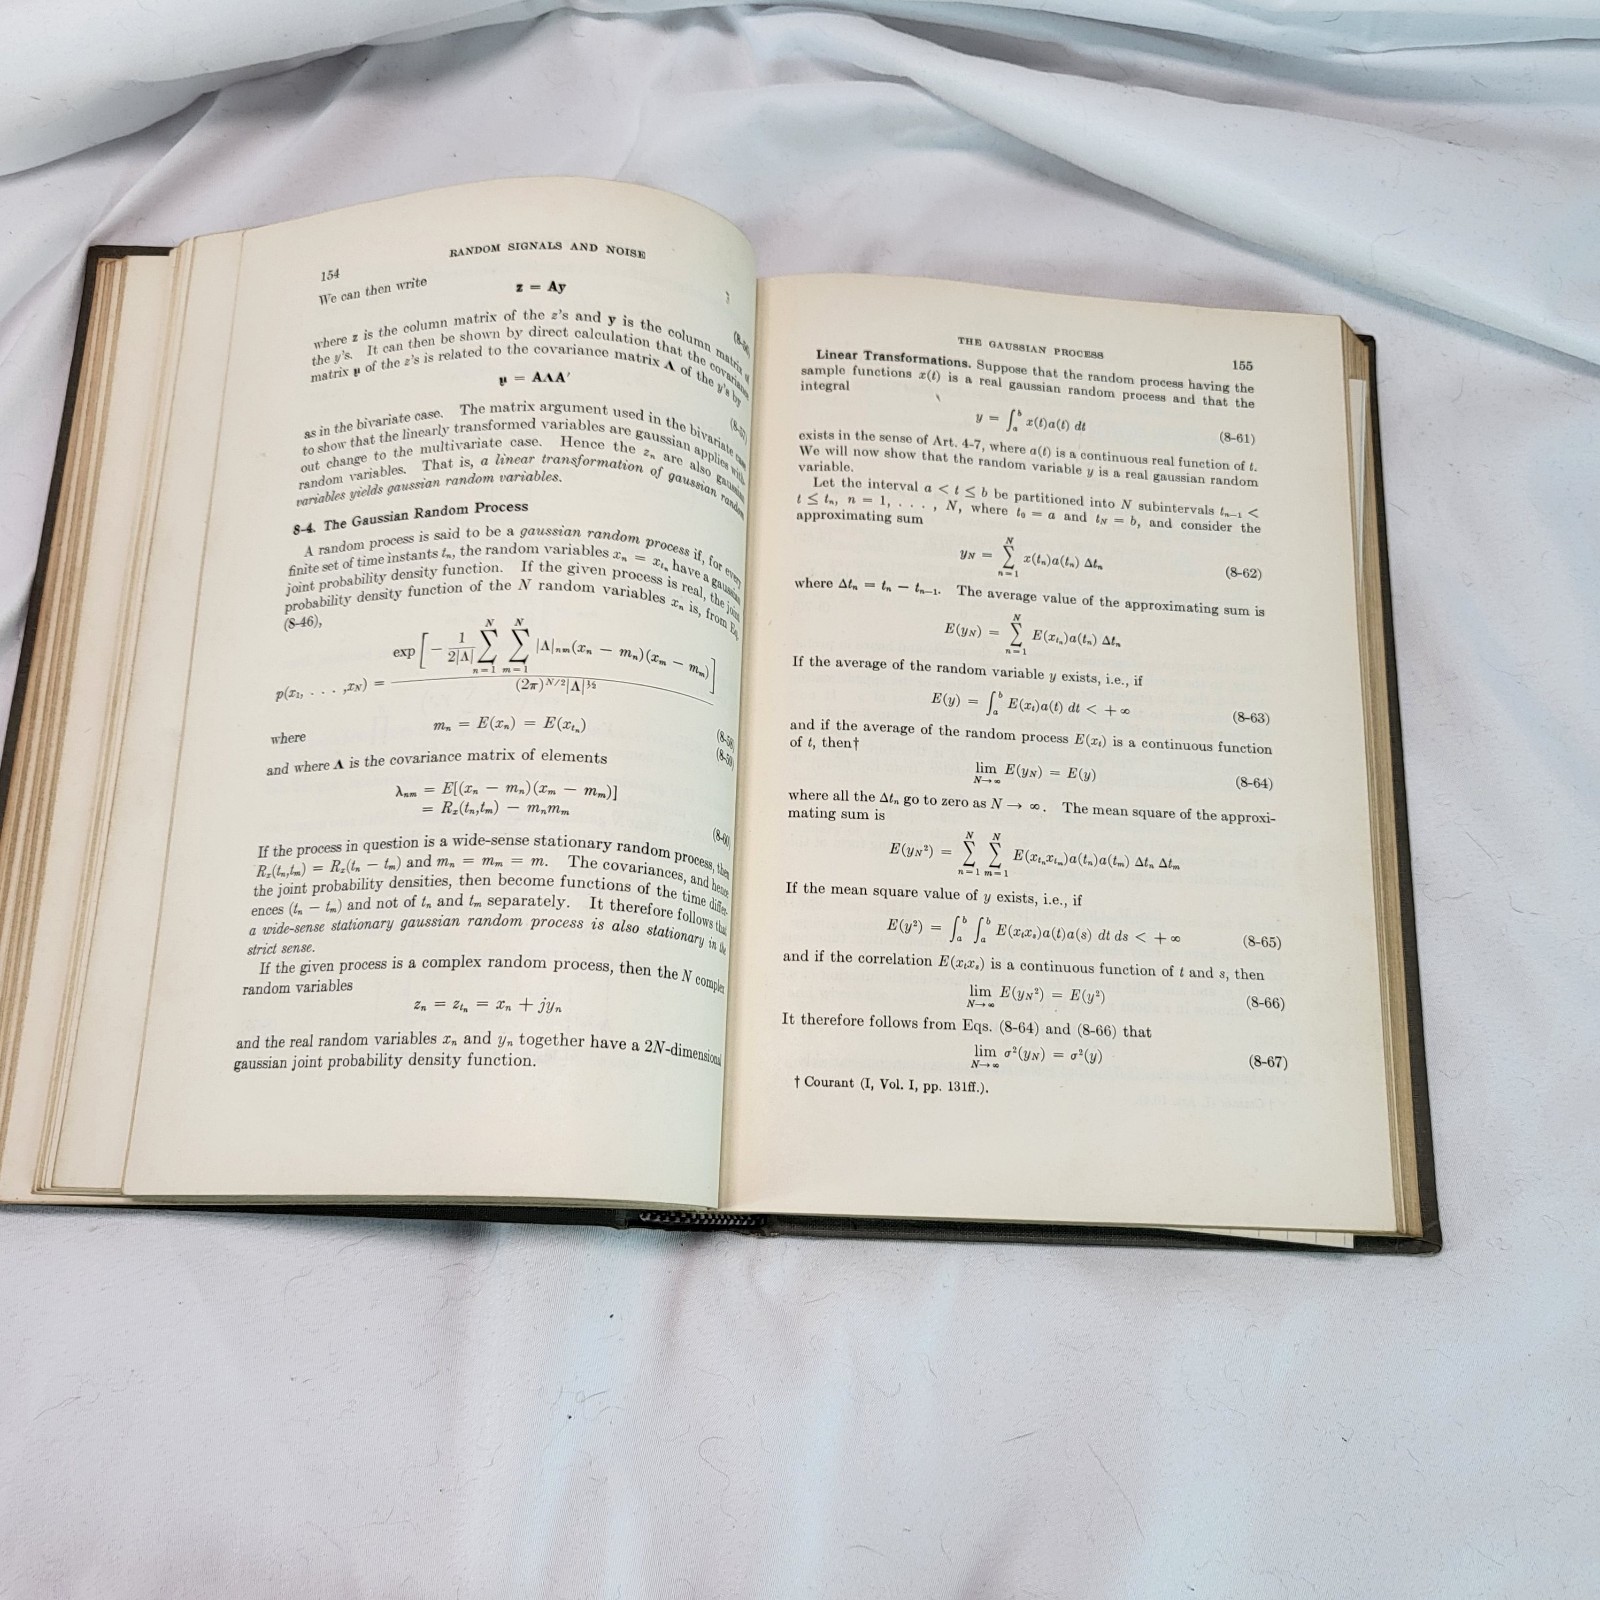 RANDOM SIGNALS AND NOISE
154
We can then write
z = Ay
(8-56)
where z is the column matrix of the z's and y is the column matrix of
the y's. It can then be shown by direct calculation that the covariance
matrix μ of the z's is related to the covariance matrix Λ of the y's by
μ = AΛA'
(8-57)
as in the bivariate case. The matrix argument used in the bivariate case
to show that the linearly transformed variables are gaussian applies with-
out change to the multivariate case. Hence the zₙ are also gaussian
random variables. That is, a linear transformation of gaussian random
variables yields gaussian random variables.
8-4. The Gaussian Random Process
A random process is said to be a gaussian random process if, for every
finite set of time instants tₙ, the random variables xₙ = x_{tₙ} have a gaussian
joint probability density function. If the given process is real, the joint
probability density function of the N random variables xₙ is, from Eq.
(8-46),
p(x₁, . . . ,x_N) = exp [ − 1/(2|Λ|) Σ_{n=1}^{N} Σ_{m=1}^{N} |Λ|ₙₘ(xₙ − mₙ)(xₘ − mₘ) ] / (2π)^{N/2}|Λ|^{½}
(8-58)
where mₙ = E(xₙ) = E(x_{tₙ})
(8-59)
and where Λ is the covariance matrix of elements
λₙₘ = E[(xₙ − mₙ)(xₘ − mₘ)]
= Rₓ(tₙ,tₘ) − mₙmₘ
(8-60)
If the process in question is a wide-sense stationary random process, then
Rₓ(tₙ,tₘ) = Rₓ(tₙ − tₘ) and mₙ = mₘ = m. The covariances, and hence
the joint probability densities, then become functions of the time differ-
ences (tₙ − tₘ) and not of tₙ and tₘ separately. It therefore follows that
a wide-sense stationary gaussian random process is also stationary in the
strict sense.
If the given process is a complex random process, then the N complex
random variables
zₙ = z_{tₙ} = xₙ + jyₙ
and the real random variables xₙ and yₙ together have a 2N-dimensional
gaussian joint probability density function.
THE GAUSSIAN PROCESS
155
Linear Transformations. Suppose that the random process having the
sample functions x(t) is a real gaussian random process and that the
integral
y = ∫_a^b x(t)a(t) dt (8-61)
exists in the sense of Art. 4-7, where a(t) is a continuous real function of t.
We will now show that the random variable y is a real gaussian random
variable.
Let the interval a < t ≤ b be partitioned into N subintervals t_{n−1} <
t ≤ tₙ, n = 1, . . . , N, where t₀ = a and t_N = b, and consider the
approximating sum
y_N = Σ_{n=1}^{N} x(tₙ)a(tₙ) Δtₙ (8-62)
where Δtₙ = tₙ − t_{n−1}. The average value of the approximating sum is
E(y_N) = Σ_{n=1}^{N} E(x_{tₙ})a(tₙ) Δtₙ
If the average of the random variable y exists, i.e., if
E(y) = ∫_a^b E(x_t)a(t) dt < +∞ (8-63)
and if the average of the random process E(x_t) is a continuous function
of t, then†
lim_{N→∞} E(y_N) = E(y) (8-64)
where all the Δtₙ go to zero as N → ∞. The mean square of the approxi-
mating sum is
E(y_N²) = Σ_{n=1}^{N} Σ_{m=1}^{N} E(x_{tₙ}x_{tₘ})a(tₙ)a(tₘ) Δtₙ Δtₘ
If the mean square value of y exists, i.e., if
E(y²) = ∫_a^b ∫_a^b E(x_t x_s)a(t)a(s) dt ds < +∞ (8-65)
and if the correlation E(x_t x_s) is a continuous function of t and s, then
lim_{N→∞} E(y_N²) = E(y²) (8-66)
It therefore follows from Eqs. (8-64) and (8-66) that
lim_{N→∞} σ²(y_N) = σ²(y) (8-67)
† Courant (I, Vol. I, pp. 131ff.).